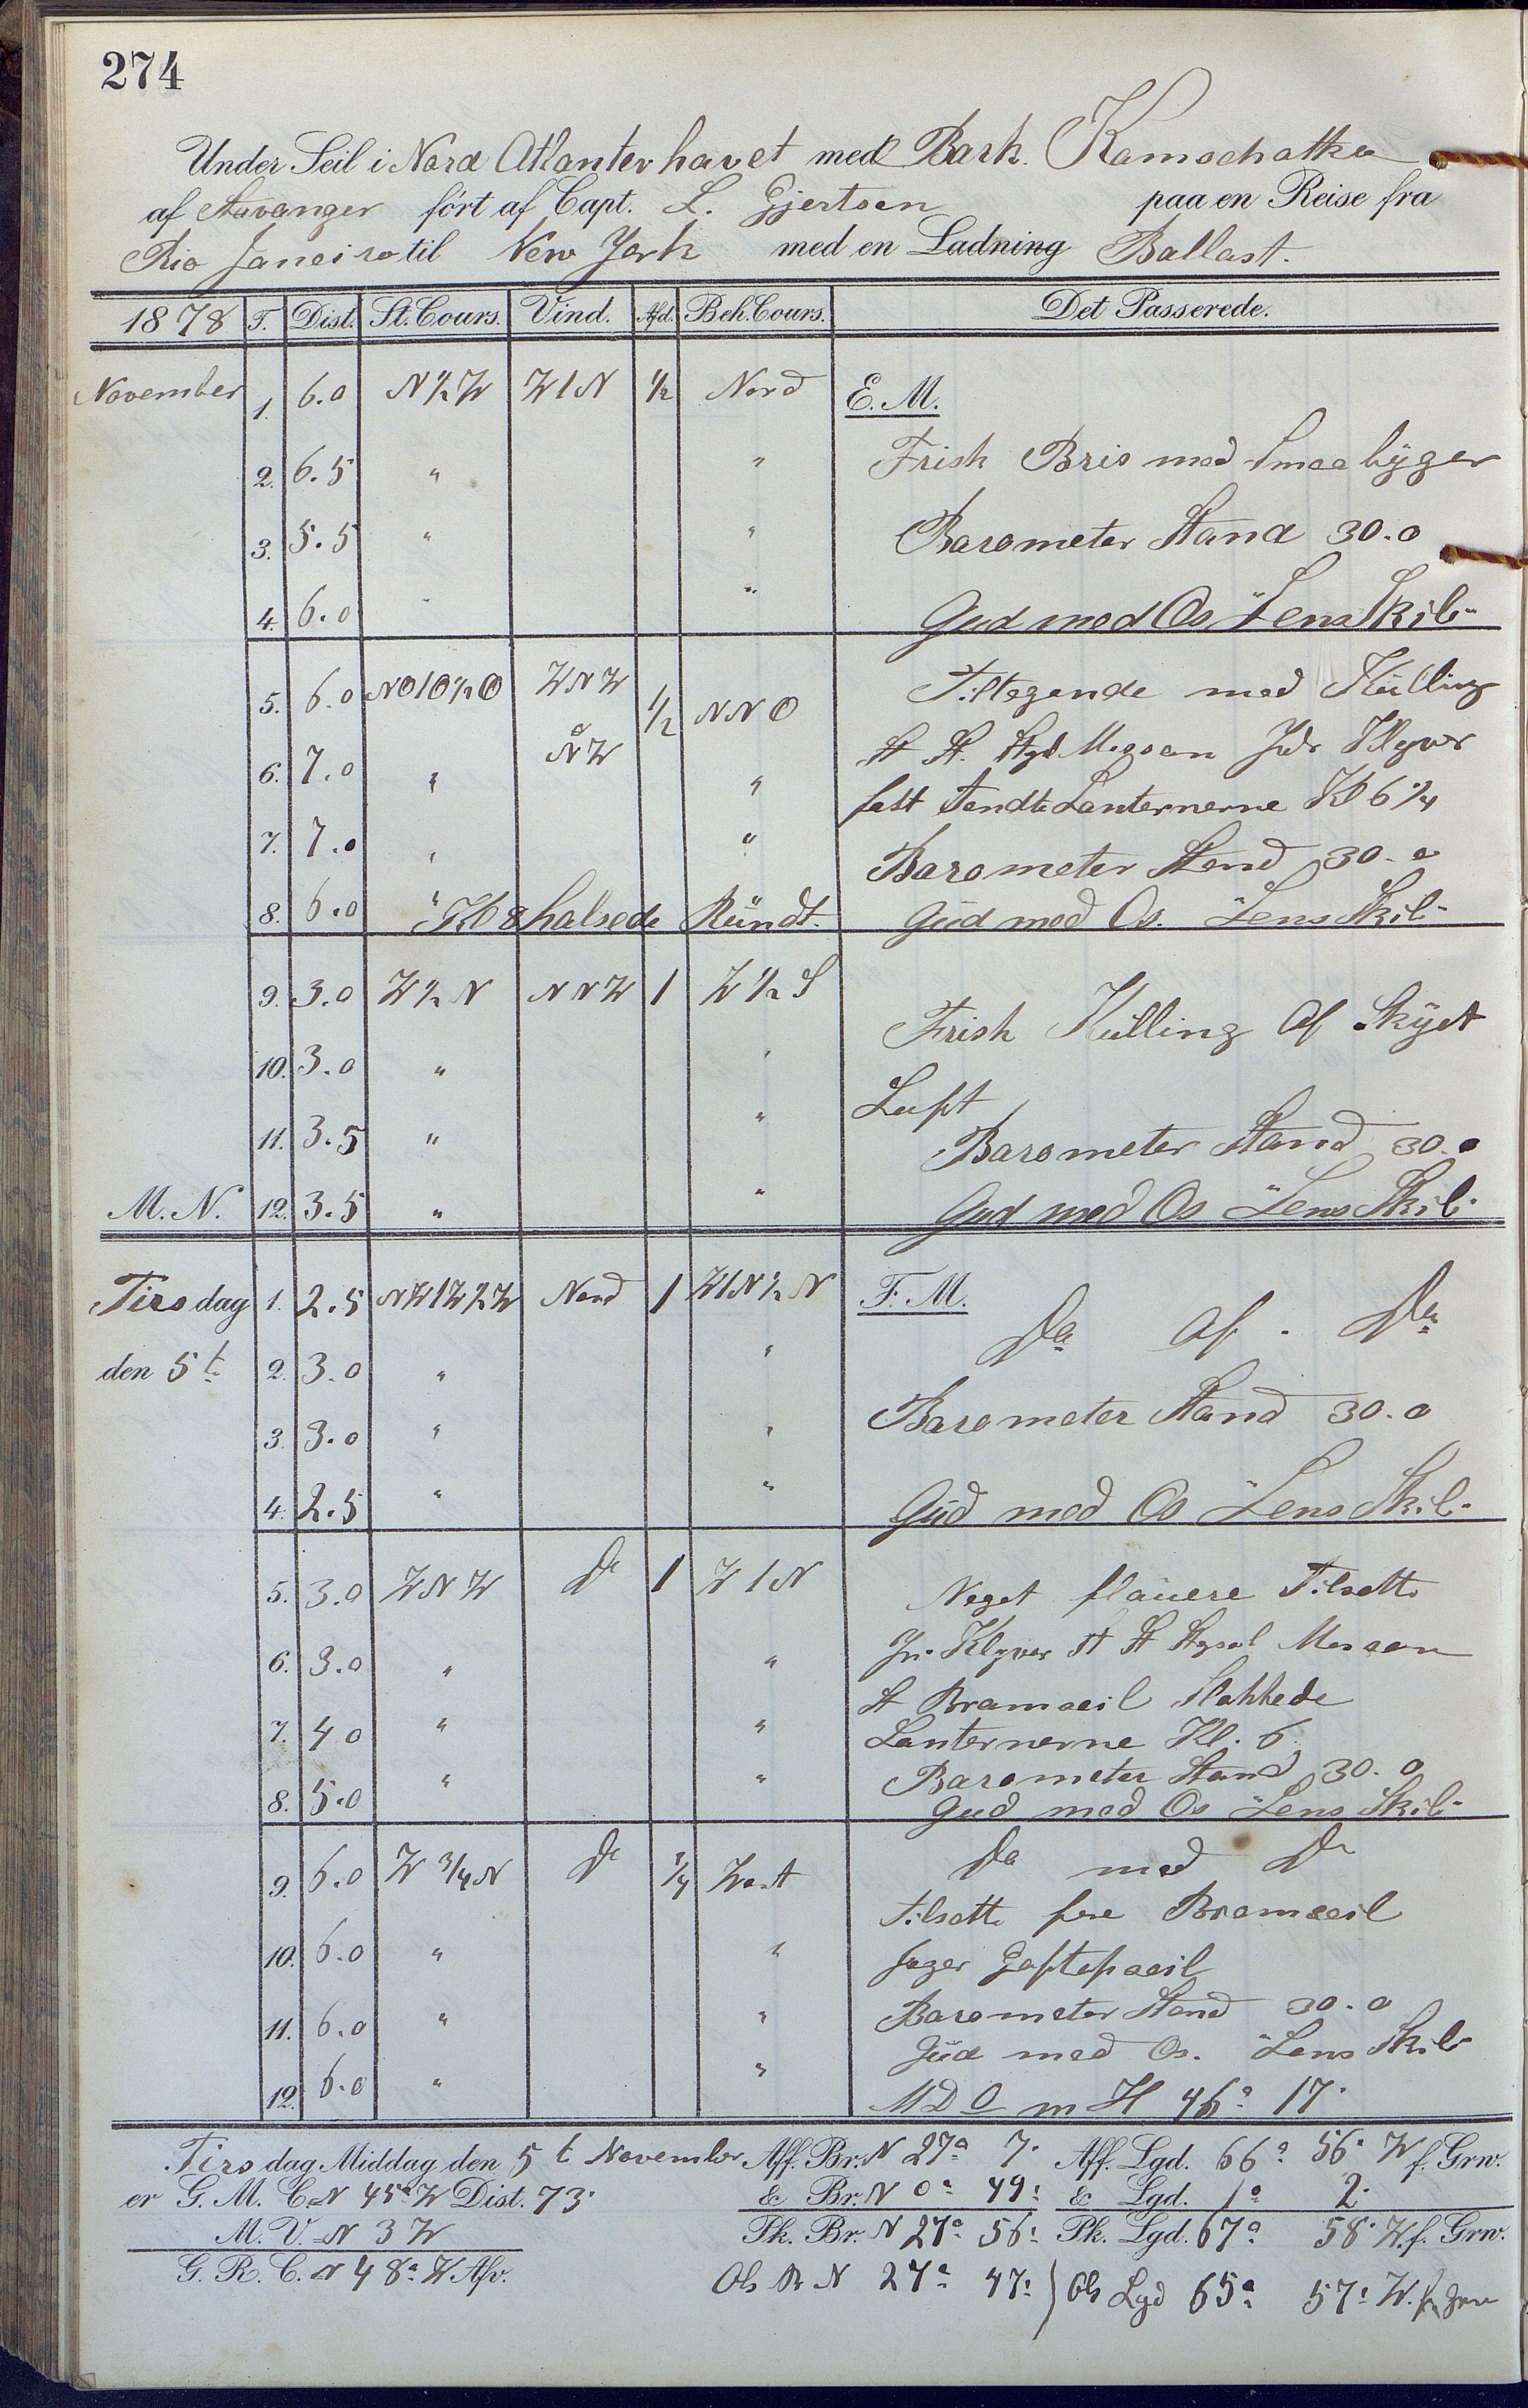 274
Under Seil i Nord Atlanterhavet med Bark. Kamschatka
af Stavanger ført af Capt. L. Gjertsen paa en Reise fra
Rio Janeiro til New York med en Ladning Ballast.
1878 T. Dist. St. Cours. Vind. Afd. Beh. Cours. Det Passerede.
November 1. 6.0 N ½ W W1N ½ Nord E.M.
2. 6.5 " " Frisk Bris med Smaa bÿger
3. 5.5 " " Barometer Stand 30.0
4. 6.0 " " Gud med Os "Lens Skib"
5. 6.0 NO1O½O WNW ½ NNO Tiltagende med Külling
St. St. Stgs Messan Jdr Klyver
6. 7.0 " NW "
fast Tendte Lanternerne Kl 6 ¼
7. 7.0 " " Barometer Stand 30.0
8. 6.0 " Kl 8 halsede Ründt. Güd med Os. "Lens Skib"
9. 3.0 W½N NNW 1 W½S
Frisk Külling Af Skÿet
10. 3.0 " "
Luft
11. 3.5 " " Barometer Stand 30.0
M.N. 12. 3.5 " " Gud med Os "Lens Skib"
Tirsdag 1. 2.5 NW1W½W Nord 1 W1N½N F.M.
Do Af. Do
den 5t 2. 3.0 " "
3. 3.0 " " Barometer Stand 30.0
4. 2.5 " " Güd med Os "Lens Skib"
5. 3.0 WNW Do 1 W1N Noget flauere Tilsatte
6. 3.0 " " Klyver St St Messan
St Bramseil Slokkede
7. 4.0 " " Lanternerne Kl. 6
Barometer Stand 30.0
8. 5.0 " " Gud med Os "Lens Skib"
9. 6.0 W ¾ N Do ¾ West Do med Do
Tilsatte fore Bramseil
10. 6.0 " " Jager
11. 6.0 " " Barometer Stand 30.0
Güd med Os. "Lens Skib"
12. 6.0 " " m H 46° 17'
Tirsdag Middag den 5t November Aff. Br. N 27° 7' Aff. Lgd. 66° 56' W f. Grw.
er G. M. C. N 45° W Dist. 73' & Br. N 0° 49' & Lgd. 1° 2'
M. V. N 3 W Pk. Br. N 27° 56' Pk. Lgd. 67° 58' W. f. Grw.
G. R. C. N 48° W Afv.
Obs Br N 27° 47' Obs Lgd 65° 57' W. fr Grw